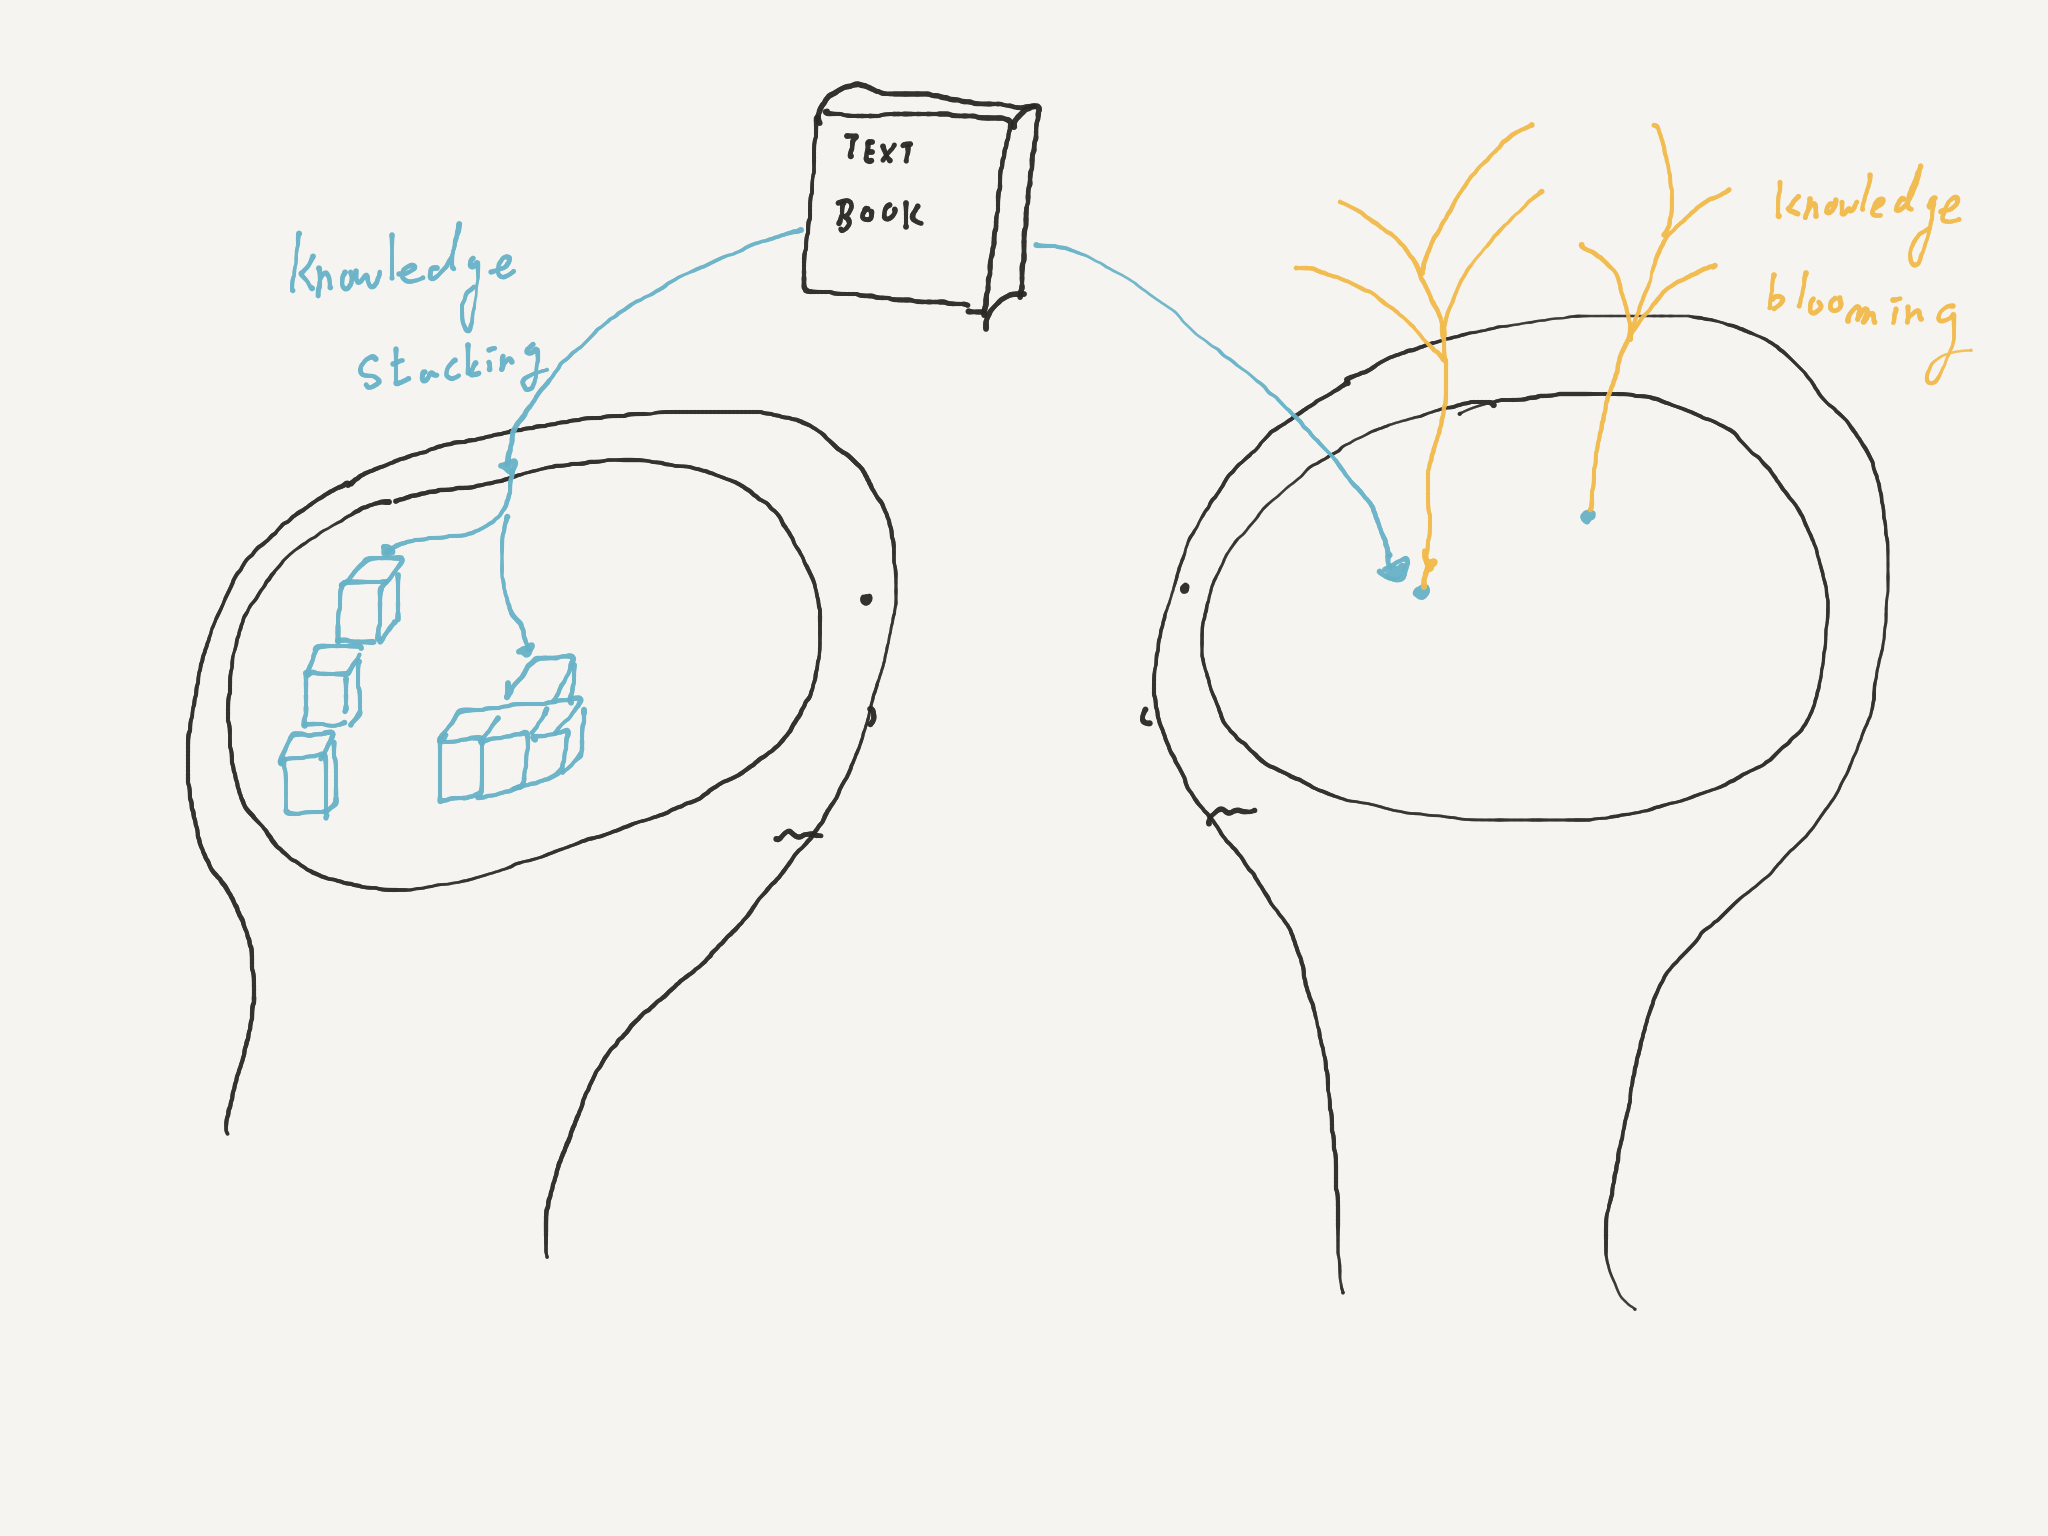 TEXT
BOOK
knowledge
stacking
knowledge
blooming